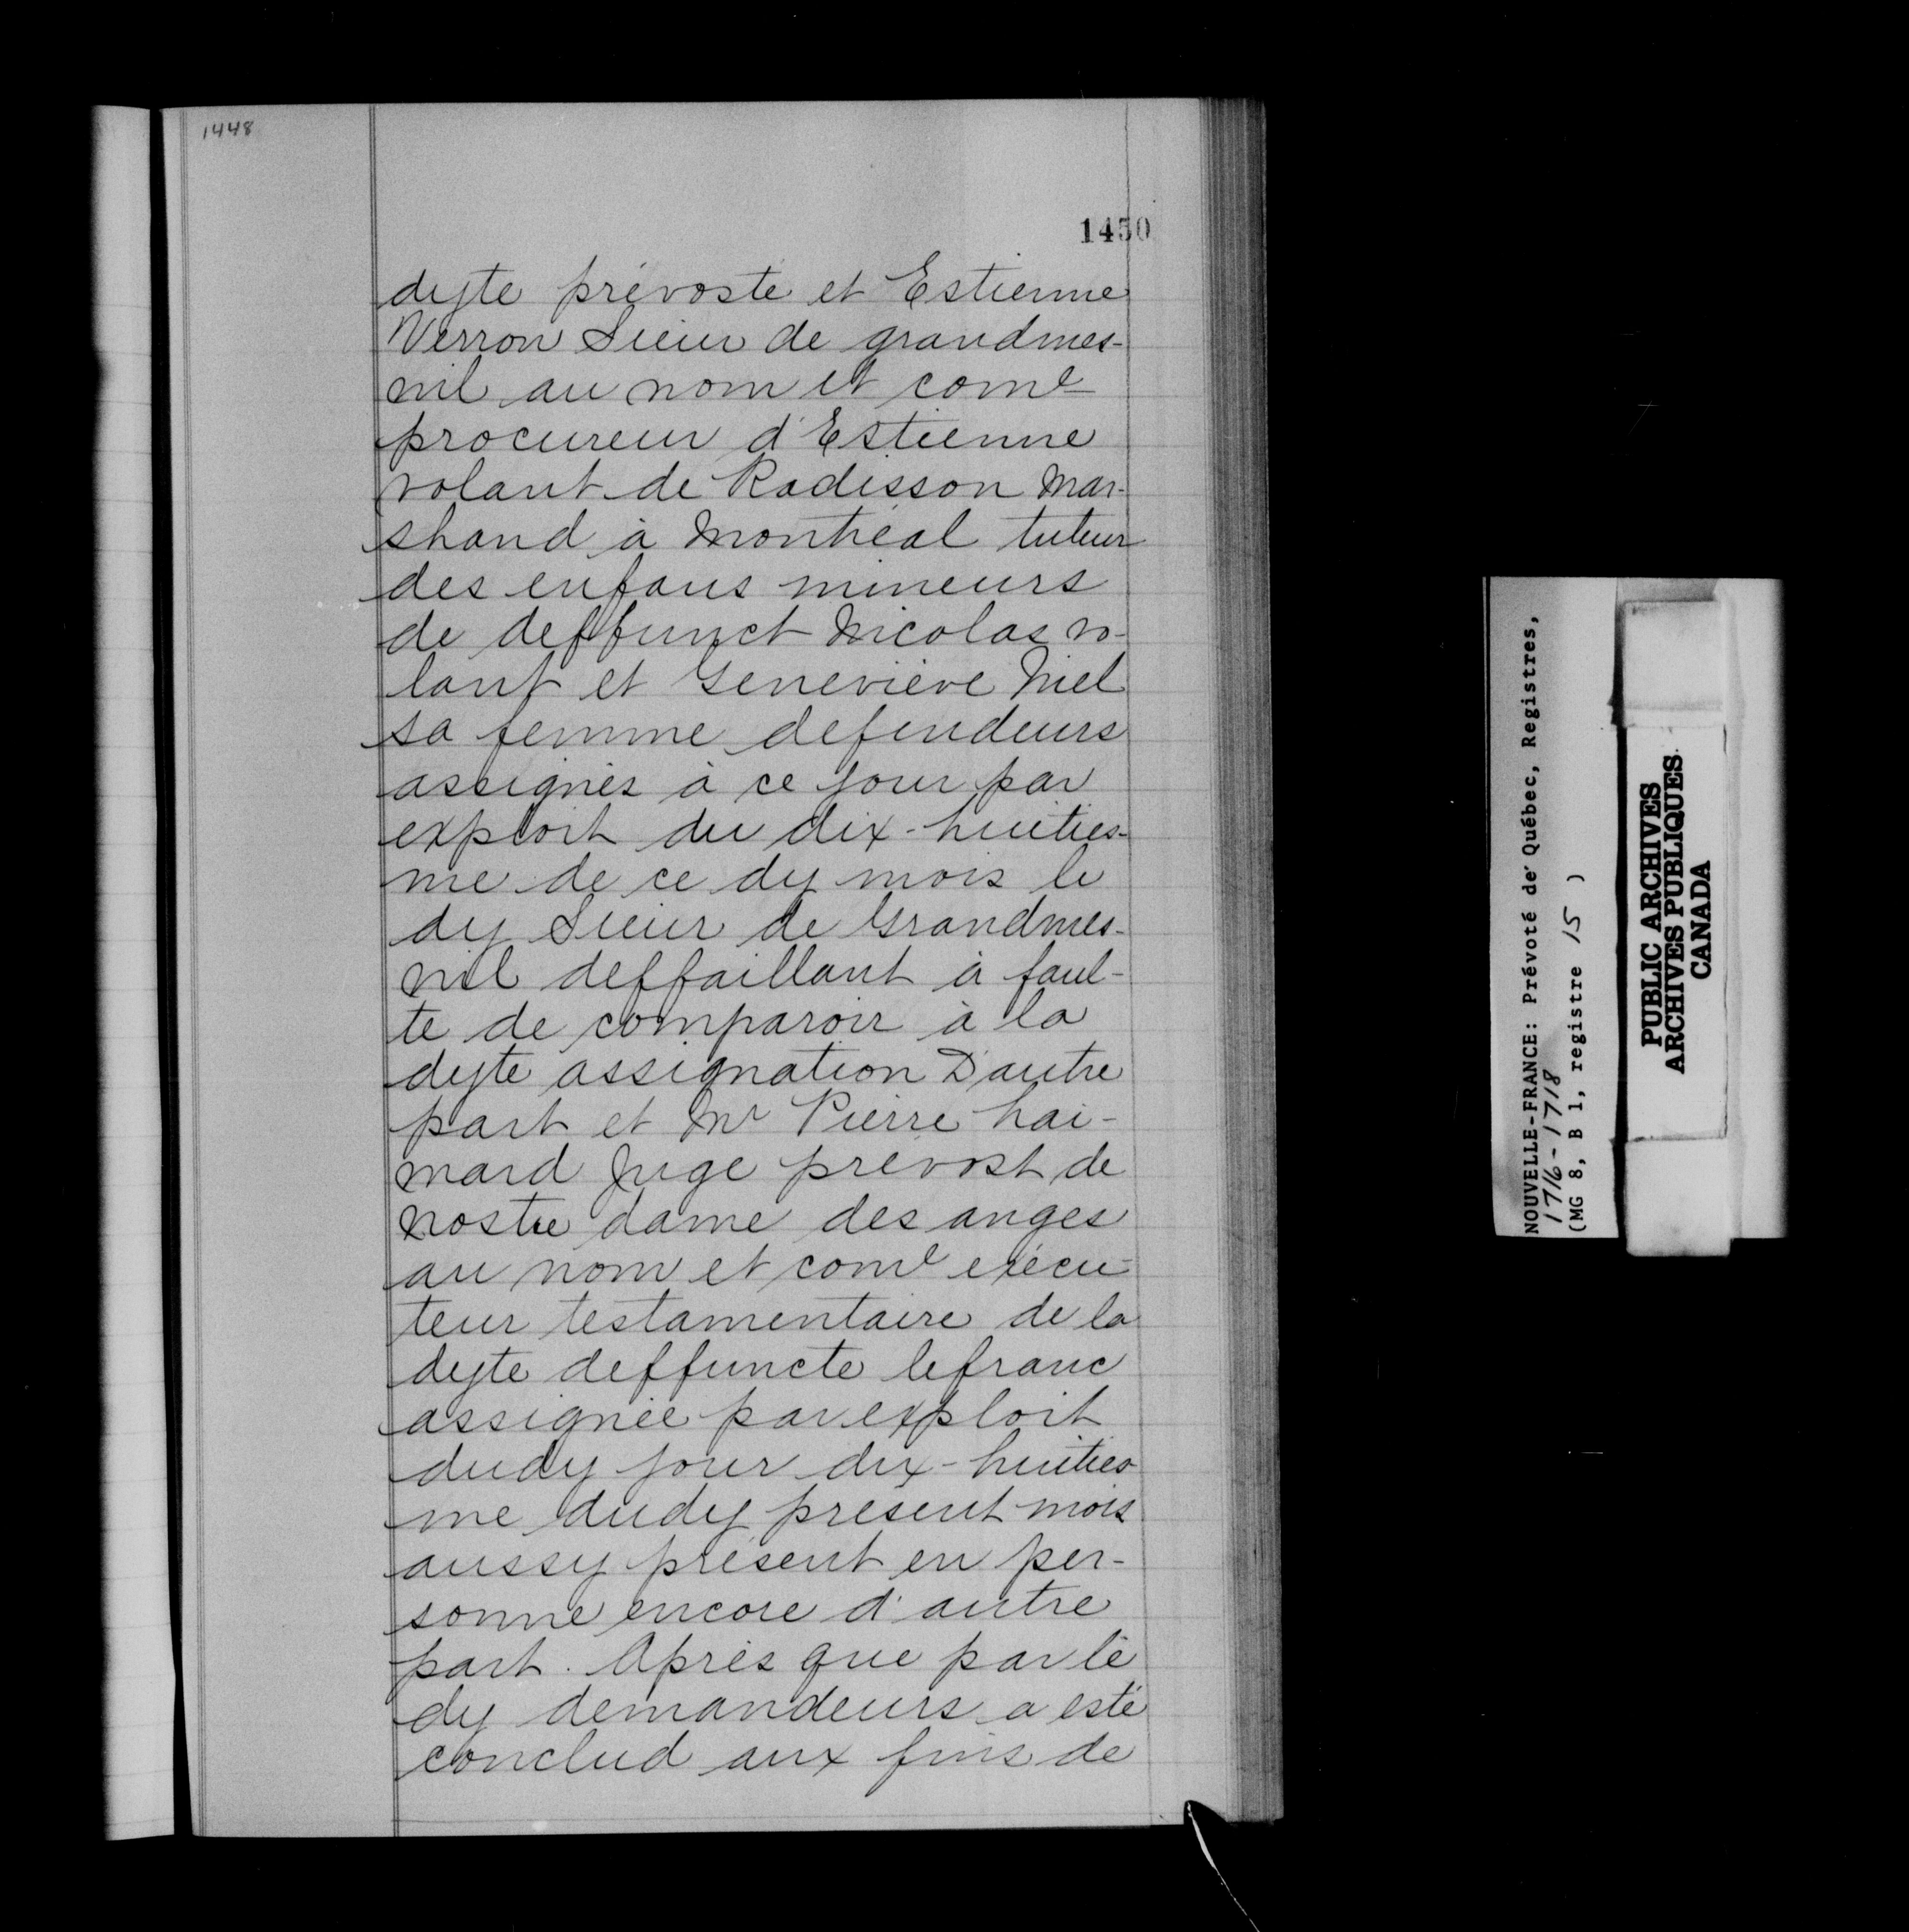 1448
1450
dyte prévosté et Estienne
Verron Sieur de grandmes-
nil au nom et come
procureur d'Estienne
volant de Radisson Mar-
shand à Montréal tuteur
des enfans mineurs
de deffunct Nicolas vo-
lant et Geneviève Niel
sa femme defendeurs
assignés à ce jour par
exploit du dix-huities-
me de ce dy mois le
dy Sieur de Grandmes-
nil deffaillant à faul-
te de comparoir à la
dyte assignation D'autre
part et Mr Pierre hai-
mard Juge prévost de
nostre dame des anges
au nom et come exécu-
teur testamentaire de la
dyte deffuncte lefranc
assignée par exploit
dudy jour dix-huities
me dudy présent mois
aussy présent en per-
sonne encore d'autre
part. Après que par le
dy demandeurs a esté
conclud aux fins de
NOUVELLE-FRANCE: Prévoté de Québec, Registres,
1716-1718
(MG 8, B 1, registre 15 )
PUBLIC ARCHIVES
ARCHIVES PUBLIQUES
CANADA